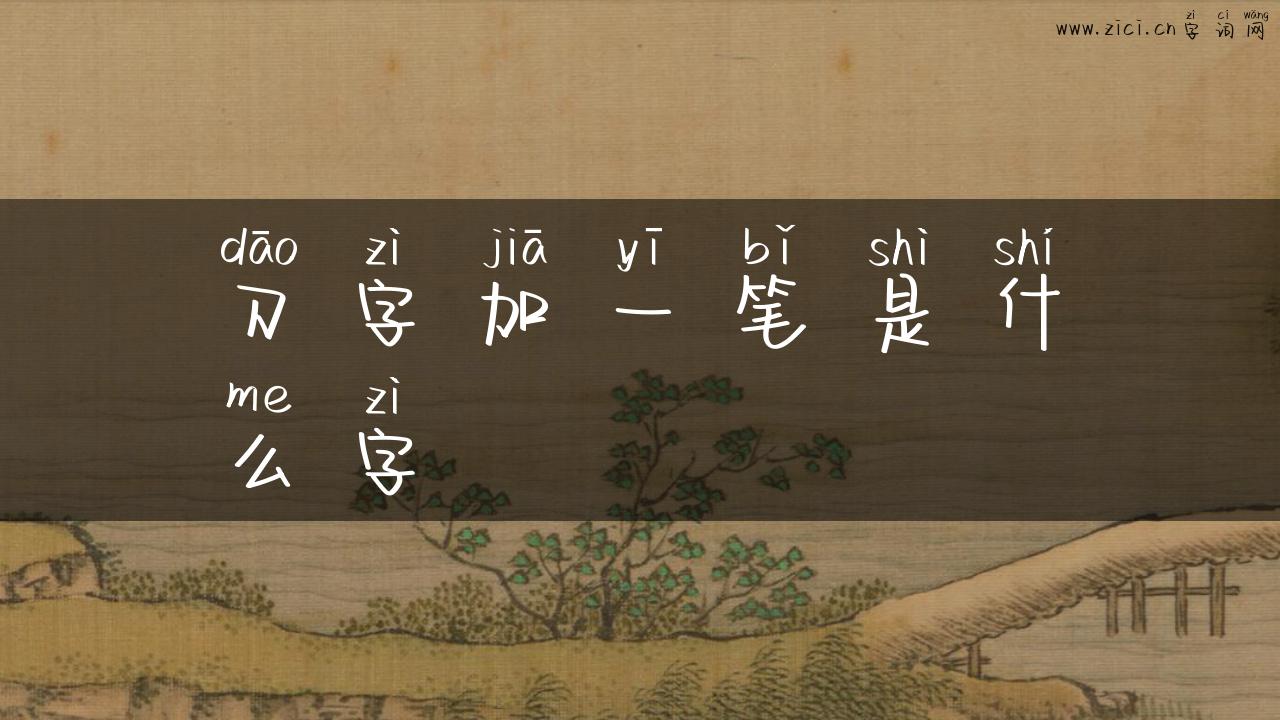 zì cí wǎng
www.zici.cn 字词网
dāo zì jiā yī bǐ shì shí
刀字加一笔是什
me zì
么字